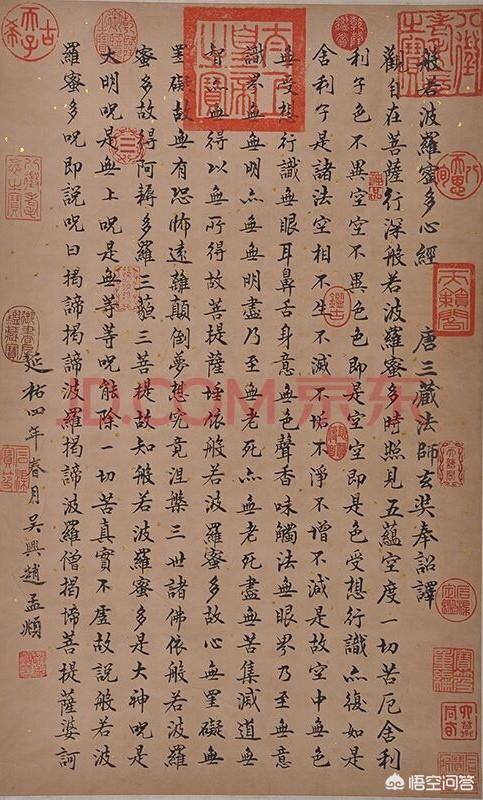 般若波羅蜜多心經 唐三藏法師玄奘奉詔譯
觀自在菩薩行深般若波羅蜜多時照見五蘊空度一切苦厄舍利
利子色不異空空不異色色即是空空即是色受想行識亦復如是
舍利子是諸法空相不生不滅不垢不淨不增不減是故空中無色
無受想行識無眼耳鼻舌身意無色聲香味觸法無眼界乃至無意
識界無無明亦無無明盡乃至無老死亦無老死盡無苦集滅道無
智亦無得以無所得故菩提薩埵依般若波羅蜜多故心無罣礙無
罣礙故無有恐怖遠離顛倒夢想究竟涅槃三世諸佛依般若波羅
蜜多故得阿耨多羅三藐三菩提故知般若波羅蜜多是大神呪是
大明呪是無上呪是無等等呪能除一切苦真實不虛故說般若波
羅蜜多呪即說呪曰揭諦揭諦波羅揭諦波羅僧揭諦菩提薩婆訶
延祐四年春月吳興趙孟頫
太上皇帝之寶
八徵耄念之寶
古稀天子
天籟閣
JD.COM 京东
悟空问答